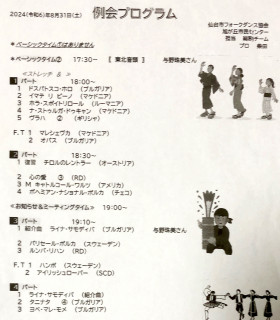 2024(令和6)年8月31日(土)
例会プログラム
仙台市フォークダンス協会
旭ヶ丘市民センター
担当 編制チーム
プロ 栗田
*ベーシックタイム①はありません
*ベーシックタイム② 17:30~ 【 東北音頭 】 与野珠美さん
<ストレッチ & >
1 パート 18:00~
1 ドスパトスコ・ホロ (ブルガリア)
2 イマテ リ ピーノ (マケドニア)
3 ホラ・スポイトリロール (ルーマニア)
4 ナ・ストゥルガ・ドゥキャン (マケドニア)
5 ヴラハ ② (ギリシャ)
F.T 1 マレシェヴカ (マケドニア)
2 オパス (ブルガリア)
2 パート 18:40~
1 復習 チロルのレントラー (オーストリア)
2 心の愛 ③ (RD)
3 M キャトルコール・ワルツ (アメリカ)
4 ボヘミアン・ナショナル・ポルカ (チェコ)
<お知らせ&ミーティングタイム> 19:00~
3 パート 19:10~
1 紹介曲 ライナ・サモディバ (ブルガリア) 与野珠美さん
2 パリセール・ポルカ (スウェーデン)
3 ルンバ・リハン (RD)
F.T 1 ハンボ (スウェーデン)
2 アイリッシュローバー (SCD)
4 パート
1 ライナ・サモディバ (紹介曲)
2 タニナタ ④ (ブルガリア)
3 ヨベ・マレ・モメ (ブルガリア)